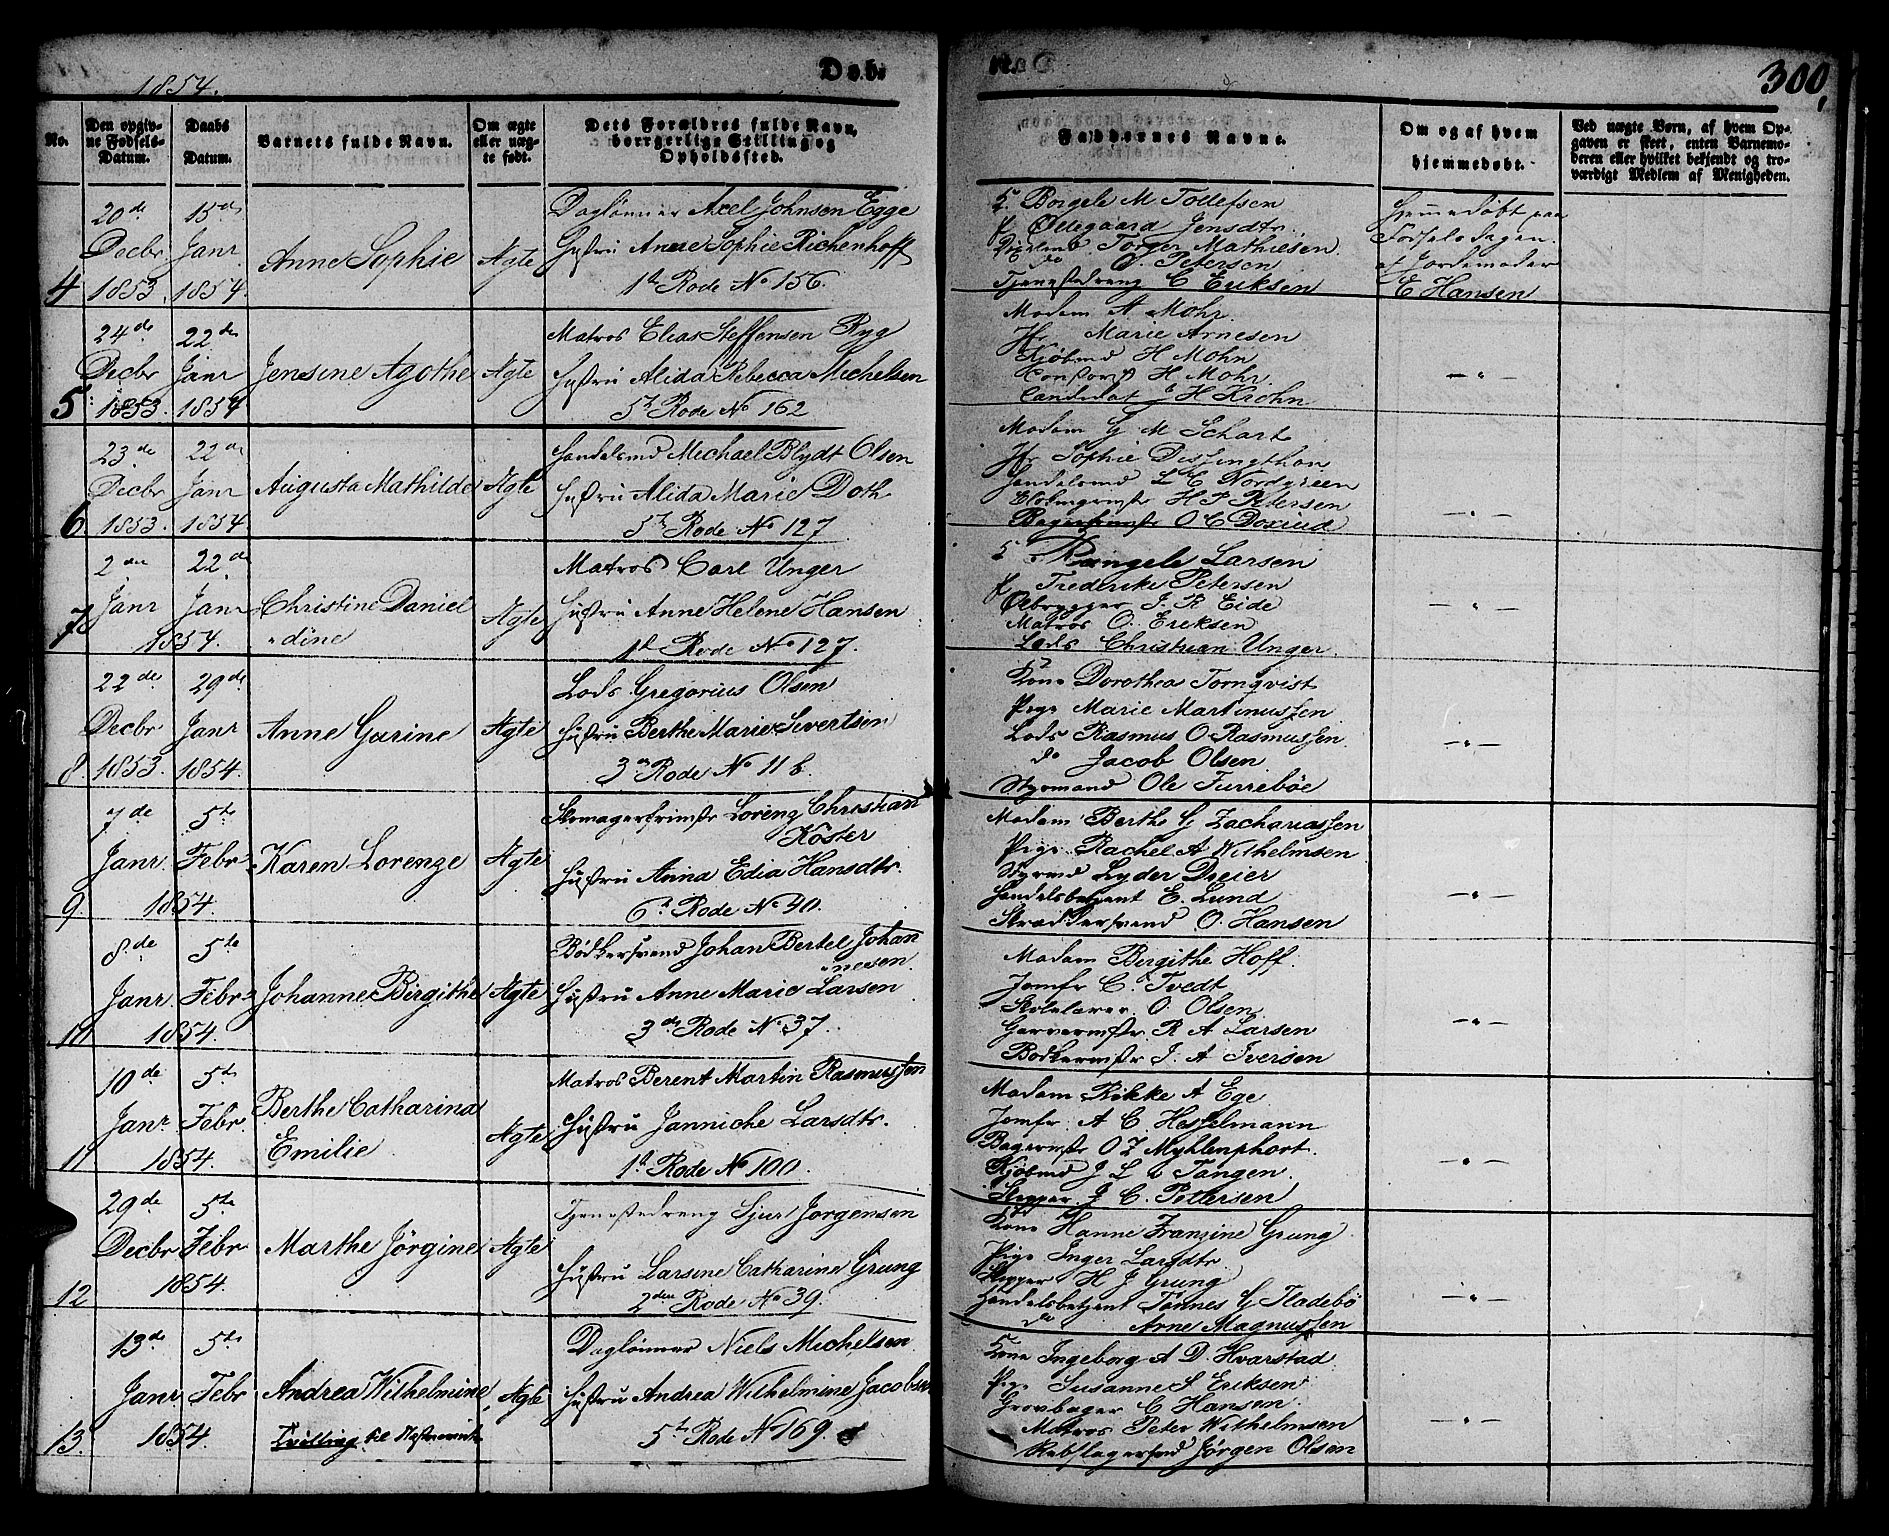 1854.
Døb.
300,
No.
Den opgiv-
ne Fødsels-
Datum.
Daabs
Datum.
Barnets fulde Navn.
Om ægte
eller uæg-
te født.
Dets Forældres fulde Navn,
borgerlige Stilling og
Opholdssted.
Faddernes Navne.
Om og af hvem
hjemmedøbt.
Ved uægte Børn, af hvem Op-
gaven er skeet, enten Barnemo-
deren eller hvilket bekjendt og tro-
værdigt Medlem af Menigheden.
4
20de Decbr 1853.
15de Janr 1854.
Anne Sophie
Ægte
Daglønner Axel Johnsen Egge
Hustru Anne Sophie Richenhoff
1ste Rode No 156.
Borgele M Tollefsen
Øllegaard Jensdtr.
Torger Mathiesen.
do Petersen
Tjenestedreng C Eriksen
Hjemmedøbt paa
Fødselsdagen.
af Jordemoder
E Hansen
5
24de Decbr 1853.
22de Janr 1854
Jensine Agothe
Ægte
Matros Elias Steffensen Ryg
Hustru Alida Rebecca Michelsen
5te Rode No 162
Madam A Mohr.
Jfr Marie Arnesen
Kjøbmd H Mohn
H Mohr.
Candidat J H Krohn
— " —
6
23de Decbr 1853.
22de Janr 1854.
Augusta Mathilde
Ægte
Handelsmd Michael Blydt Olsen
Hustru Alida Marie Doth
5te Rode No 127
Madam G M Schart
Jfr Sophie Dessingthon
Handelsmd L C Nordgreen
H P Petersen
O C Doxrud
— " —
7
2den Janr
22de Janr
1854.
Christine Daniel
"dine
Ægte
Matros Carl Unger
Hustru Anne Helene Hansen
1ste Rode No 127.
Rangele Larsen
Frederike Petersen
Ølbrygger J. R Eide
Matros O. Eriksen
Lods Christian Unger
— " —
8
22de Decbr 1853.
29de Janr 1854.
Anne Gurine
Ægte
Lods Gregorius Olsen
Hustru Berthe Marie Sivertsen
3die Rode No 11 b.
Kone Dorothea Tornqvist
Pige Marie Martinussen
Lods Rasmus O Rasmussen
do Jacob Olsen
Styrmand Ole Furrebøe
— " —
9
7de Janr.
5te Febr
1854.
Karen Lorenze
Ægte
Skomagersvend Lorenz Christian
Köster
Hustru Anna Edia Hansdtr.
6te Rode No 40.
Madam Berthe G Zachariassen
Pige Rachel A Wilhelmsen
Styrmd Lyder Dreier
Handelsbetjent E. Lund
Skræddersvend O. Hansen
— " —
10
8de Janr
5te Febr
1854.
Johanne Birgithe
Ægte
Bødkersvend Johan Bertel Johan
"nesen
Hustru Anne Marie Larsen
3die Rode No 37.
Madam Bergithe Hoff.
Jomfr C. Tvedt
Skolelærer O. Olsen
Garvermstr R A Larsen
Bødkermstr J. A Iversen
— " —
11
10de Janr
5te Febr.
1854.
Berthe Catharina
Emilie
Ægte
Matros Berent Martin Rasmussen
Hustru Janniche Larsdtr.
1ste Rode No 100
Madam Rikke A Ege
Jomfr. A C. Hesselmann
Bagermstr O Z Myhlenphort
Kjøbmd J L v Tangen
Skipper J C. Pettersen
— " —
12
29de Decbr
5te Febr
1854.
Marthe Jörgine
Ægte
Tjenestedreng Sjur Jørgensen
Hustru Larsine Catharine Grung
2den Rode No 39.
Kone Hanne Franzine Grung
Pige Inger Larsdtr
Skipper H J Grung
Handelsbetjent Tönnes G Fladebø
do Arne Magnussen
— " —
13.
13de Janr
5te Febr
1854.
Andrea Wilhelmine
Tvilling til Næstnævnte
Ægte
Daglønner Niels Michelsen
Hustru Andrea Wilhelmine Jacobsen
5te Rode No 169.
Kone Ingeborg A D. Hvarstad
Pige Susanne S Eriksen
Grovbager C Hansen.
Matros Peter Wilhelmsen
Rebslagersvd Jørgen Olsen
— " —